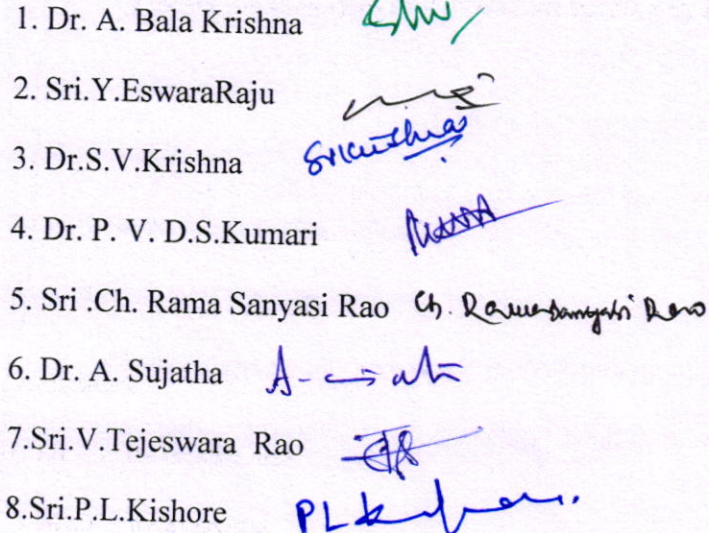 1. Dr. A. Bala Krishna
2. Sri.Y.EswaraRaju
3. Dr.S.V.Krishna Srikrishna
4. Dr. P. V. D.S.Kumari
5. Sri .Ch. Rama Sanyasi Rao Ch. Ramasanyasi Rao
6. Dr. A. Sujatha
7.Sri.V.Tejeswara Rao
8.Sri.P.L.Kishore PL